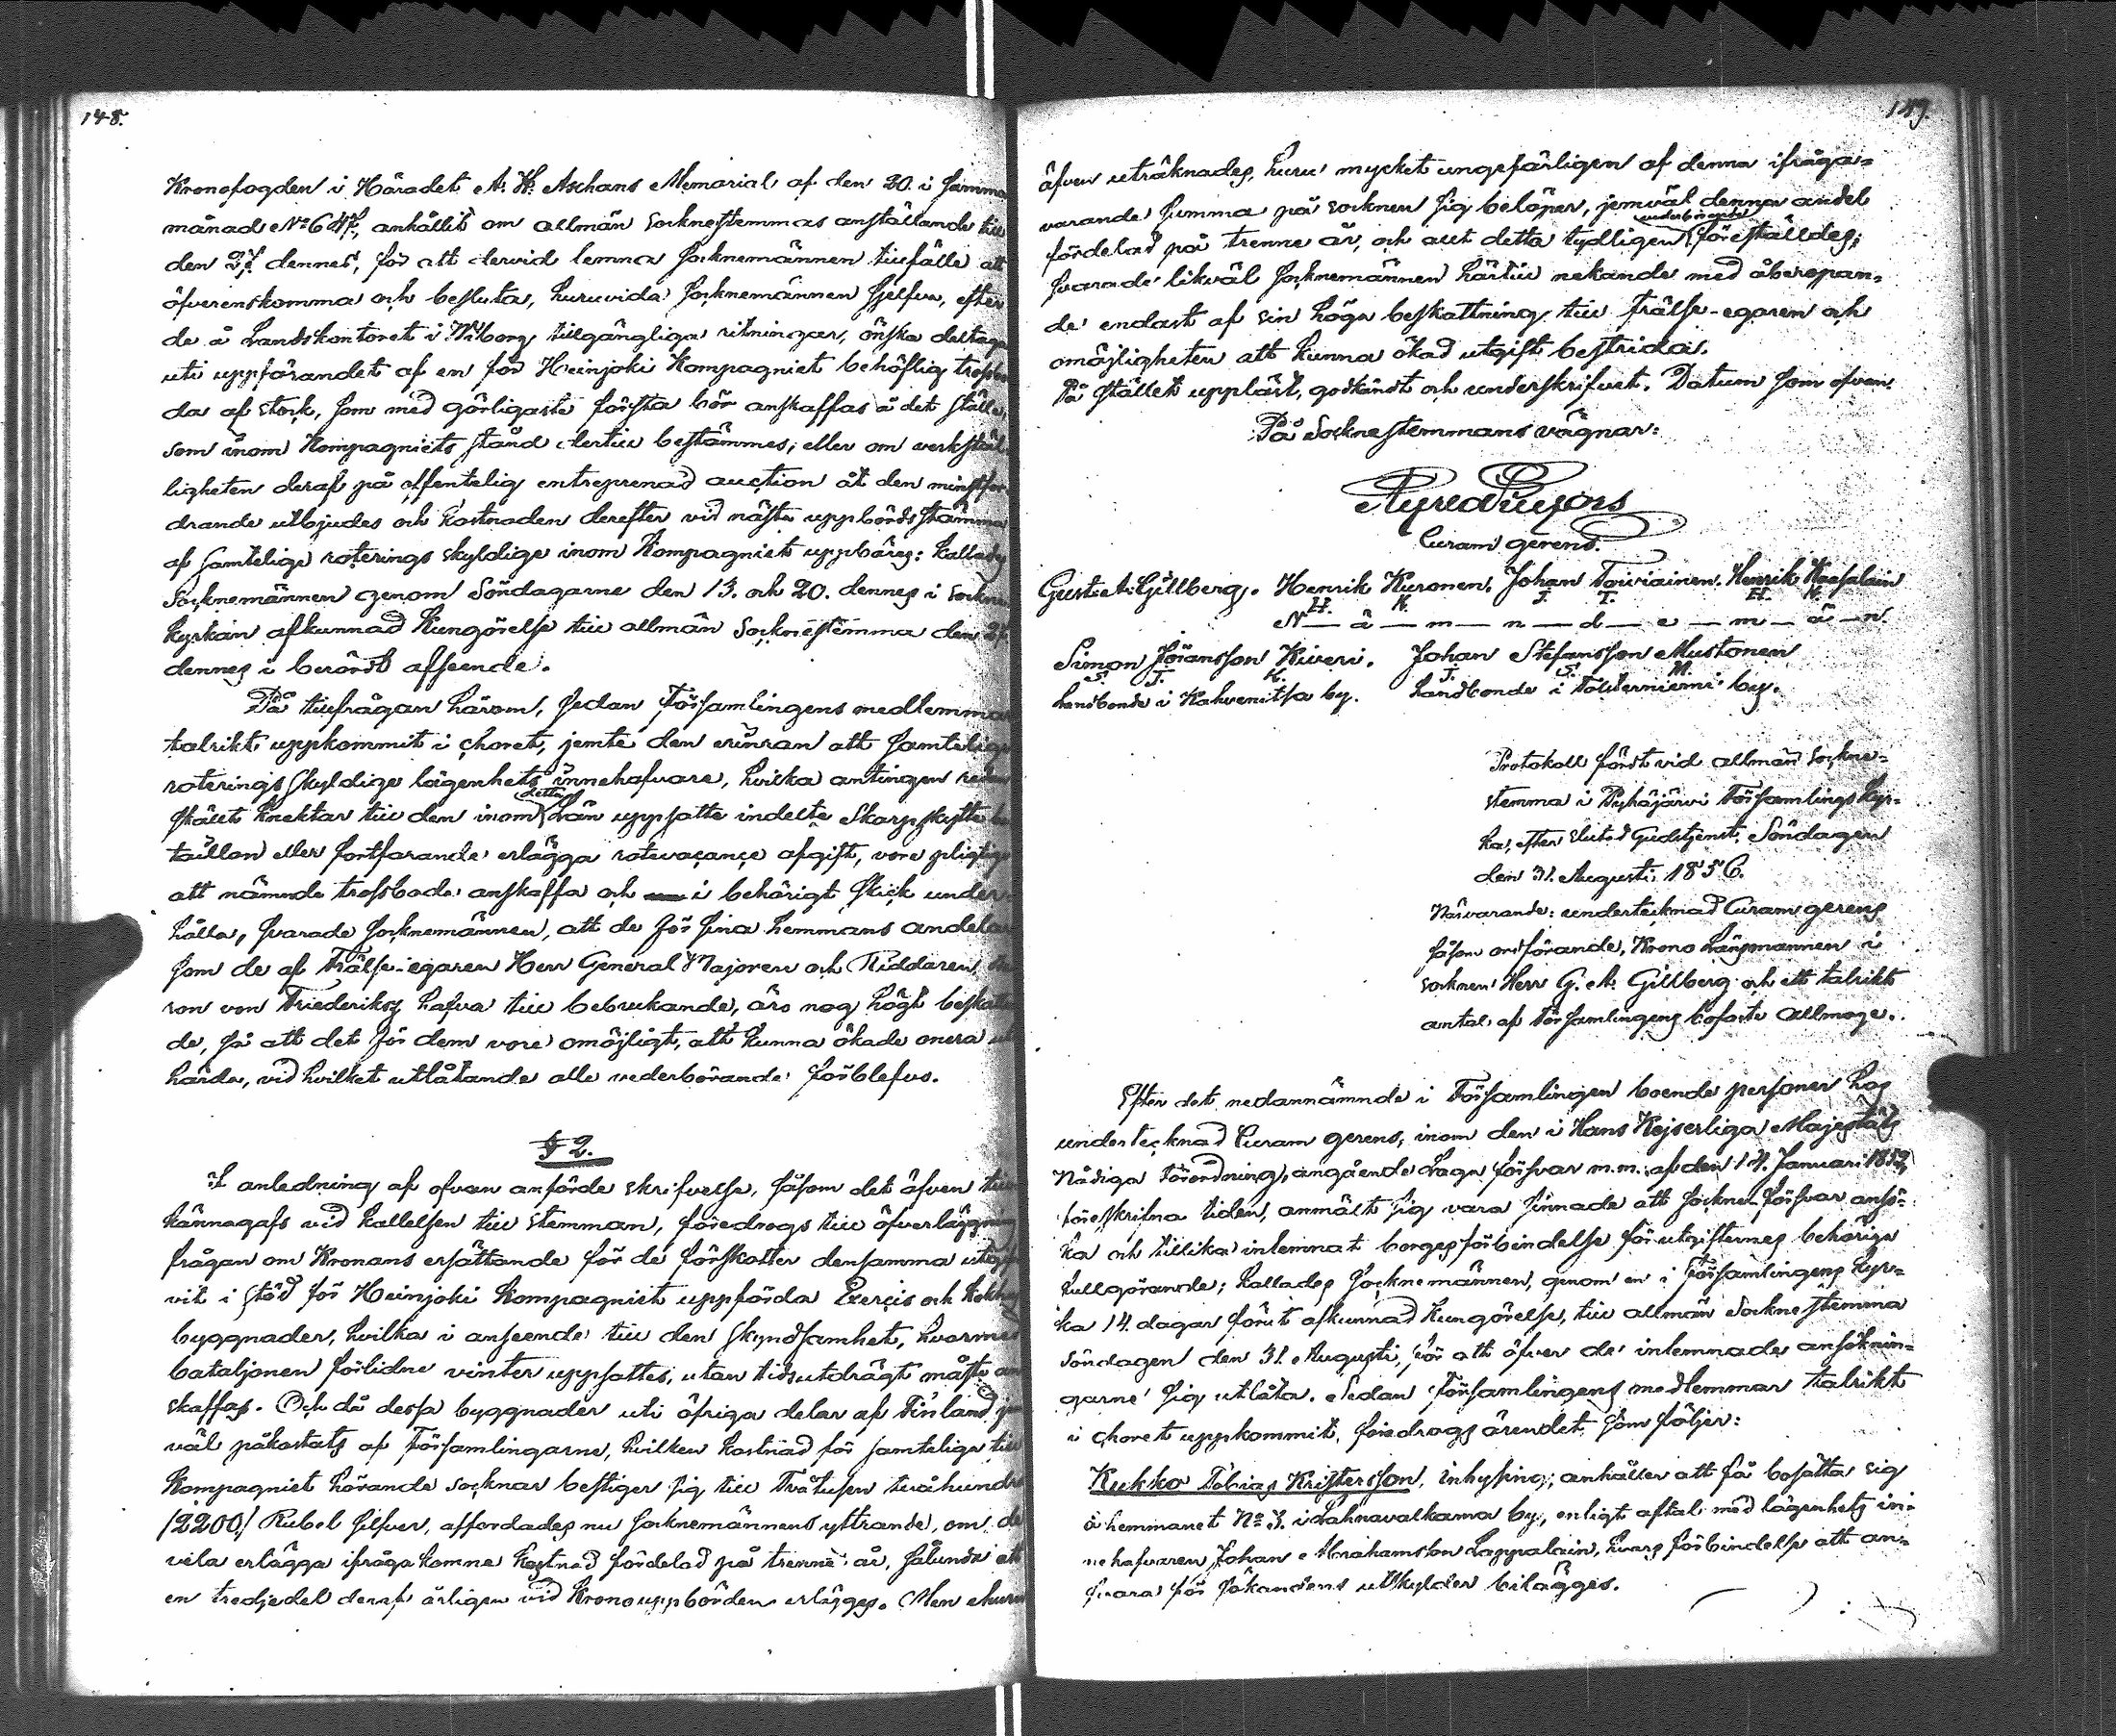 148.
Kronofogden i Häradet A. W. Aschans Memorial af den 20. i samma
månad No 647, anhållit om allmän Socknestemmas anställande till
den 27 dennes, för att dervid lemna Socknemännen tillfälle att
öfverenskomma och besluta, huruvida Socknemännen sjelfva, efter
de å Landskontoret i Wiborg tillgängliga ritningar, önska deltaga
uti uppförandet af en för Heinjoki Kompagniet behöflig trossbo-
da af stock, som med görligaste första bör anskaffas å det ställe,
som inom Kompagniets stånd dertill bestämmes; eller om verkstäl-
ligheten deraf på offentelig entreprenad auction åt den minstfor-
drande utbjudes och kostnaden derefter vid nästa uppbördsstämma
af samtelige roterings skyldige inom Kompagniet uppbäres: kallades
Socknemännen genom Söndagarne den 13. och 20. dennes i Sockne-
kyrkan afkunnad Kungörelse till allmän Socknestemma den 27
dennes i berördt afseende.
På tillfrågan härom, sedan Församlingens medlemmar
talrikt uppkommit i choret, jemte den erinran att samtelige
roterings skyldige lägenhets innehafvare, hvilka antingen redan
ställt knektar till den inom detta Län uppsatte indelte Skarpskytte ba-
taillon eller fortfarande erlägga rotevacance afgift, vore pligtige
att nämnde trossbode anskaffa och i behörigt skick under-
hålla, svarade Socknemännen, att de för sina hemmans andelar
som de af Frälse-egaren Herr General Majoren och Riddaren Ba-
ron von Friederiksz hafva till bebrukande, äro nog högt beskatta-
de, så att det för dem vore omöjligt, att kunna ökade onera ut-
härda, vid hvilket utlåtande alle vederbörande förblefvo.
§ 2.
I anledning af ofvan anförde skrifvelse, såsom det äfven till-
kännagafs vid kallelsen till stemman, föredrogs till öfverläggning
frågan om Kronans ersättande för de förskotter densamma utgif-
vit i stöd för Heinjoki Kompagniet uppförda Exercis och Kokhus
byggnader, hvilka i anseende till den skyndsamhet, hvarmed
bataljonen förlidne vinter uppsattes, utan tidsutdrägt måste an-
skaffas. Och då dessa byggnader uti öfriga delar af Finland jem-
väl påkostats af Församlingarne, hvilken kostnad för samtelige till
Kompagniet hörande socknar bestiger sig till Tvåtusen tvåhundra
/2200/ Rubel Silfver, affordades nu Socknemännens yttrande, om de
vela erlägga ifråga komne kostnad fördelad på trenne år, sålunda att
en tredjedel deraf årligen vid Kronouppbörden erlägges. Men ehuru
149.
äfven uträknades, huru mycket ungefärligen af denna ifråga-
varande summa på socknen sig belöper, jemväl denna andel
fördelad på trenne år, och allt detta tydligen vederbörande föreställdes;
svarade likväl Socknemännen härtill nekande med åberopan-
de endast af sin höga beskattning till Frälse-egaren och
omöjligheten att kunna ökad utgift bestrida.
På stället uppläst, godkändt och underskrifvet. Datum som ofvan.
På Socknestemmans vägnar:
Curam gerens.
Gust. A. Gillberg. Henrik Kuronen. Johan Toiviainen. Henrik Kaasalain
H. K. J. T. H. K.
N — ä — m — n — d — e — m — ä — n
Simon Jöransson Kiveri. Johan Stefansson Mustonen
S. J. K. J. S. M.
landbonde i Kahvenitsa by. landbonde i Tolsterniemi by.
Protokoll fördt vid allmän Sockne-
stemma i Pyhäjärvi Församlings kyr-
ka, efter slutad Gudstjenst, Söndagen
den 31. Augusti 1856.
Närvarande: undertecknad Curam gerens
såsom ordförande, Krono Länsmannen i
socknen Herr G. A. Gillberg och ett talrikt
antal af Församlingens bofaste Allmoge.
Efter det nedannämnde i Församlingen boende personer hos
undertecknad Curam gerens, inom den i Hans Kejserliga Majestäts
Nådiga Förordning, angående Laga försvar m.m. af den 17. Januari 1852,
föreskrifna tiden, anmält sig vara sinnade att Socknen-försvar ansö-
ka och tillika inlemnat borgesförbindelse för utgifternes behöriga
fullgörande; kallades Socknemännen, genom en i Församlingens kyr-
ka 14. dagar förut afkunnad Kungörelse, till allmän Socknestemma
Söndagen den 31. Augusti, för att öfver de inlemnade ansöknin-
garne sig utlåta. Sedan Församlingens medlemmar talrikt
i choret uppkommit, föredrogs ärendet som följer:
Kukko Tobias Kristersson, inhysing; anhåller att få bosätta sig
å hemmanet No 3. i Lahnavalkama by, enligt aftal med lägenhets in-
nehafvaren Johan Abrahamsson Lappalain, hvars förbindelse att an-
svara för sökandens utskylder bilägges.